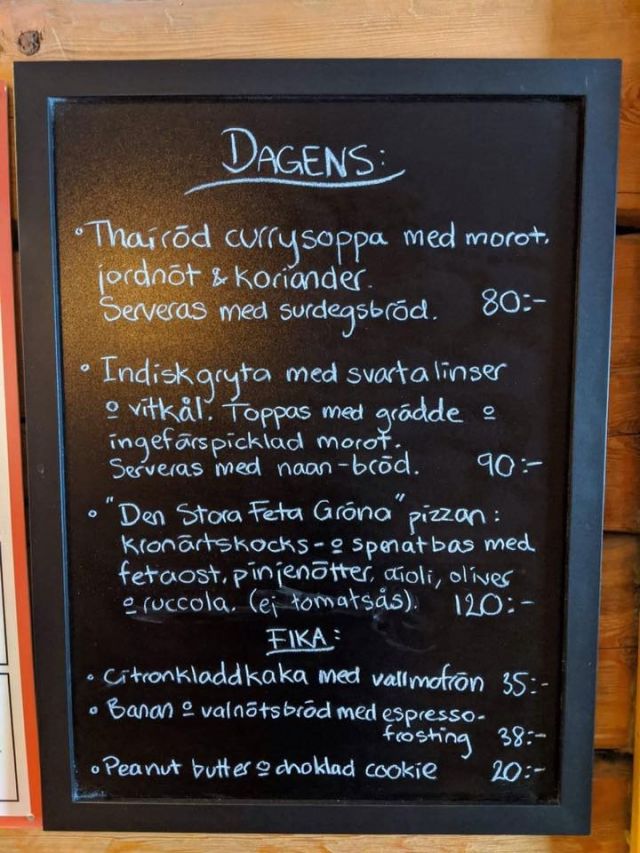 DAGENS:
• Thairöd currysoppa med morot,
jordnöt & koriander.
Serveras med surdegsbröd. 80:-
• Indisk gryta med svarta linser
o vitkål. Toppas med grädde o
ingefärspicklad morot.
Serveras med naan-bröd. 90:-
• "Den Stora Feta Gröna" pizzan:
kronärtskocks- o spenatbas med
fetaost, pinjenötter, aioli, oliver
o ruccola. (ej tomatsås). 120:-
FIKA:
• Citronkladdkaka med vallmofrön 35:-
• Banan o valnötsbröd med espresso-
frosting 38:-
• Peanut butter o choklad cookie 20:-